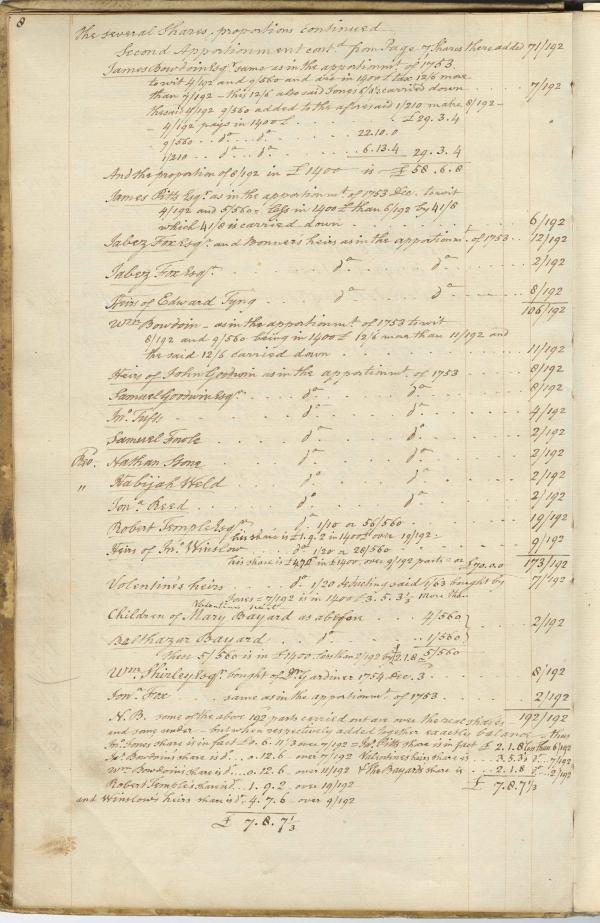 8
The several Shares, proportions continued
Second Apportionment contd. from Page 7 Shares there added 71/192
James Bowdoin Esqr. same as in the apportionmt. of 1753.
to wit 4/192 and 9/560 and are in 1400£ less 12/6 more
than 7/192 - this 12/6 also said Jones's carried down . . . 7/192
the said 4/192 9/560 added to the aforesaid 1/210 make 8/192 -
- 4/192 pays in 1400£ . . . £29.3.4
9/560 . . do . . do . . . 22.10.0
1/210 . . do . . do . . . 6.13.4 29.3.4
And the proportion of 8/192 in £1400 is £58.6.8
James Pitts Esqr. as in the apportionmt. of 1753 Dec. to wit
4/192 and 5/560 - less in 1400£ than 6/192 by 41/8
which 41/8 is carried down . . . 6/192
Jabez Fox Esqr. and Bonner's heirs as in the apportionmt. of 1753 . . 12/192
Jabez Fox Esqr. . . do . . do . . 2/192
Heirs of Edward Tyng . . do . . do . . 8/192
106/192
Wm. Bowdoin - as in the apportionmt. of 1753 to wit
8/192 and 9/560 being in 1400£ 12/6 more than 11/192 and
the said 12/6 carried down . . . 11/192
Heirs of John Goodwin as in the apportionmt. of 1753 . . 8/192
Samuel Goodwin Esqr. . . do . . do . . 8/192
Jno. Tufts . . do . . do . . 4/192
Samuel Fowle . . do . . do . . 2/192
Revd. Nathan Stone . . do . . do . . 2/192
" Habijah Weld . . do . . do . . 2/192
Jona. Reed . . do . . do . . 2/192
Robert Temple Esqr. . . do 1/10 or 56/560 . . 19/192
his share is £1.9.2 in 1400£ over 19/192
Heirs of Jno. Winslow . . do 1/20 or 28/560 . . 9/192
his share is £4.7.6 in £1400, over 9/192 parts = or £70.0.0 173/192
Volentine's heirs . . do. 1/20 deducting said 1/63 bought by 7/192
Jones = 7/192 is in 1400£ 3.5.3 1/2 more than
Valentine
Children of Mary Bayard as above . . 4/560
2/192
Balthazar Bayard . . do . . 1/560
These 5/560 is in £1400 less than 2/192 by £2.1.8 = 5/560
Wm. Shirley Esqr. bought of Dr. Gardiner 1754 Dec. 3 . . 8/192
Jona. Fox . . same as in the apportionmt. of 1753 . . 2/192
192/192
N.B. some of the above 192 parts carried out are over the real shares
and some under - but when respectively added together exactly balance - thus
Jno. Jones share is in fact £0.6.11 1/3 over 7/192 - Jas. Pitts share is in fact £2.1.8 less than 6/192
Jas. Bowdoins share is do. . 0.12.6 over 7/192 Valentines heirs share is . . 3.5.3 1/3 do. 7/192
Wm. Bowdoins share is do. . 0.12.6 over 11/192 & The Bayards share is . . 2.1.8 do. 2/192
Robert Temple's share is do. 1.9.2 over 19/192 £7.8.7 1/3
and Winslow's heirs share is do. 4.7.6 over 9/192
£7.8.7 1/3